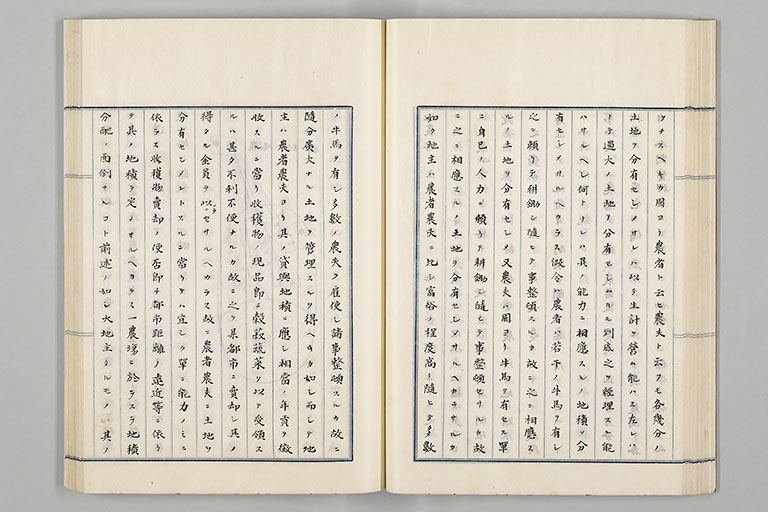 ヲナスヘキカ固ヨリ農者ト云ヒ農夫ト云フモ各幾分ノ
土地ヲ分有セシメサレハ以テ生計ヲ営ム能ハス左レハ
トテ過大ノ土地ヲ分有セシムルモ到底之ヲ経理スル能
ハサルヘシ何トナレハ其ノ能力ニ相應スルノ地積ヲ分
有セシメサルヘカラス假令ハ農者ハ若干ノ牛馬ヲ有シ
之ニ頼リテ耕鋤シ随ヒテ事整頓スルカ故ニ之ニ相應ス
ルノ土地ヲ分有セシメ又農夫ハ固ヨリ牛馬ヲ有セス單
ニ自己ノ人力ニ頼リテ耕鋤シ随ヒテ事整頓セサルカ故
ニ之ニ相應スルノ土地ヲ分有セシメサルヘカラサルカ
如ク地主ハ農者農夫ニ比シ富裕ノ程度高ク随ヒテ多数
ノ牛馬ヲ有シ多數ノ農夫ヲ雇使シ諸事整頓スルカ故ニ
随分廣大ナル土地ヲ管理スルヲ得ヘキカ如シ而シテ地
主ハ農者農夫ヨリ其ノ貸與地積ニ應シ相當ノ年貢ヲ徴
收スルニ當リ收獲物ノ現品即チ穀菽蔬菜ヲ以テ受領ス
ルハ甚タ不利不便ナルカ故ニ之ヲ某都市ニ賣却シ其ノ
得タル金員ヲ以テセサルヘカラス故ニ農者農夫ニ土地ヲ
分有セシメントスルニ當リテハ宜シク單ニ能力ノミニ
依ラス收獲物賣却ノ便否即チ都市距離ノ遠近等ニ依リ
テ其ノ地積ヲ定メサルヘカラス一農場ニ於テスラ地積
分配ノ面倒ナルコト前述ノ如シ大地主タルモノ其ノ